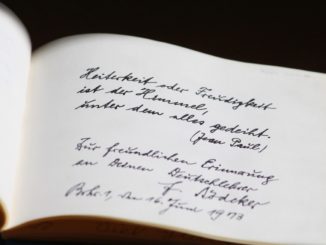 Heiterkeit oder Freudigkeit
ist der Himmel,
unter dem alles gedeiht.
(Jean Paul)
Zur freundlichen Erinnerung
an Deinen Deutschlehrer
F. Rädeker
1, den 16. Juni 1973